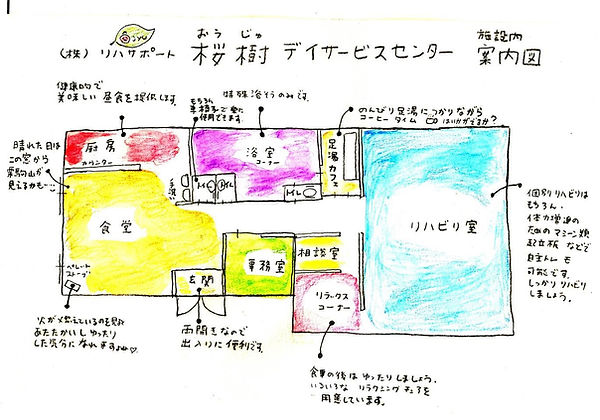 おうじゅ
(株)リハサポート 桜樹 デイサービスセンター
施設内
案内図
健康的で
美味しい昼食を提供します。
もちろん
車椅子で
使用できます。
特殊浴そうのみです。
のんびり足湯につかりながら
コーヒータイム はいかがですか？
晴れた日は
この窓から
見えるかも…
厨房
カウンター
手洗い
トイレ
トイレ
浴室
コーナー
足湯カフェ
食堂
リハビリ室
個別リハビリは
もちろん、
体力増進の
ためのマシーン類
起立板などで
自主トレも
可能です。
しっかりリハビリ
しましょう。
事務室
相談室
玄関
リラックス
コーナー
ペレット
ストーブ
火が燃えているのを見ると
あたたかいしゆったり
した気分になれますね♡
両開きなので
出入りに便利です。
食事の後はゆったりしましょう。
いろいろなリラクニングチェアを
用意しています。